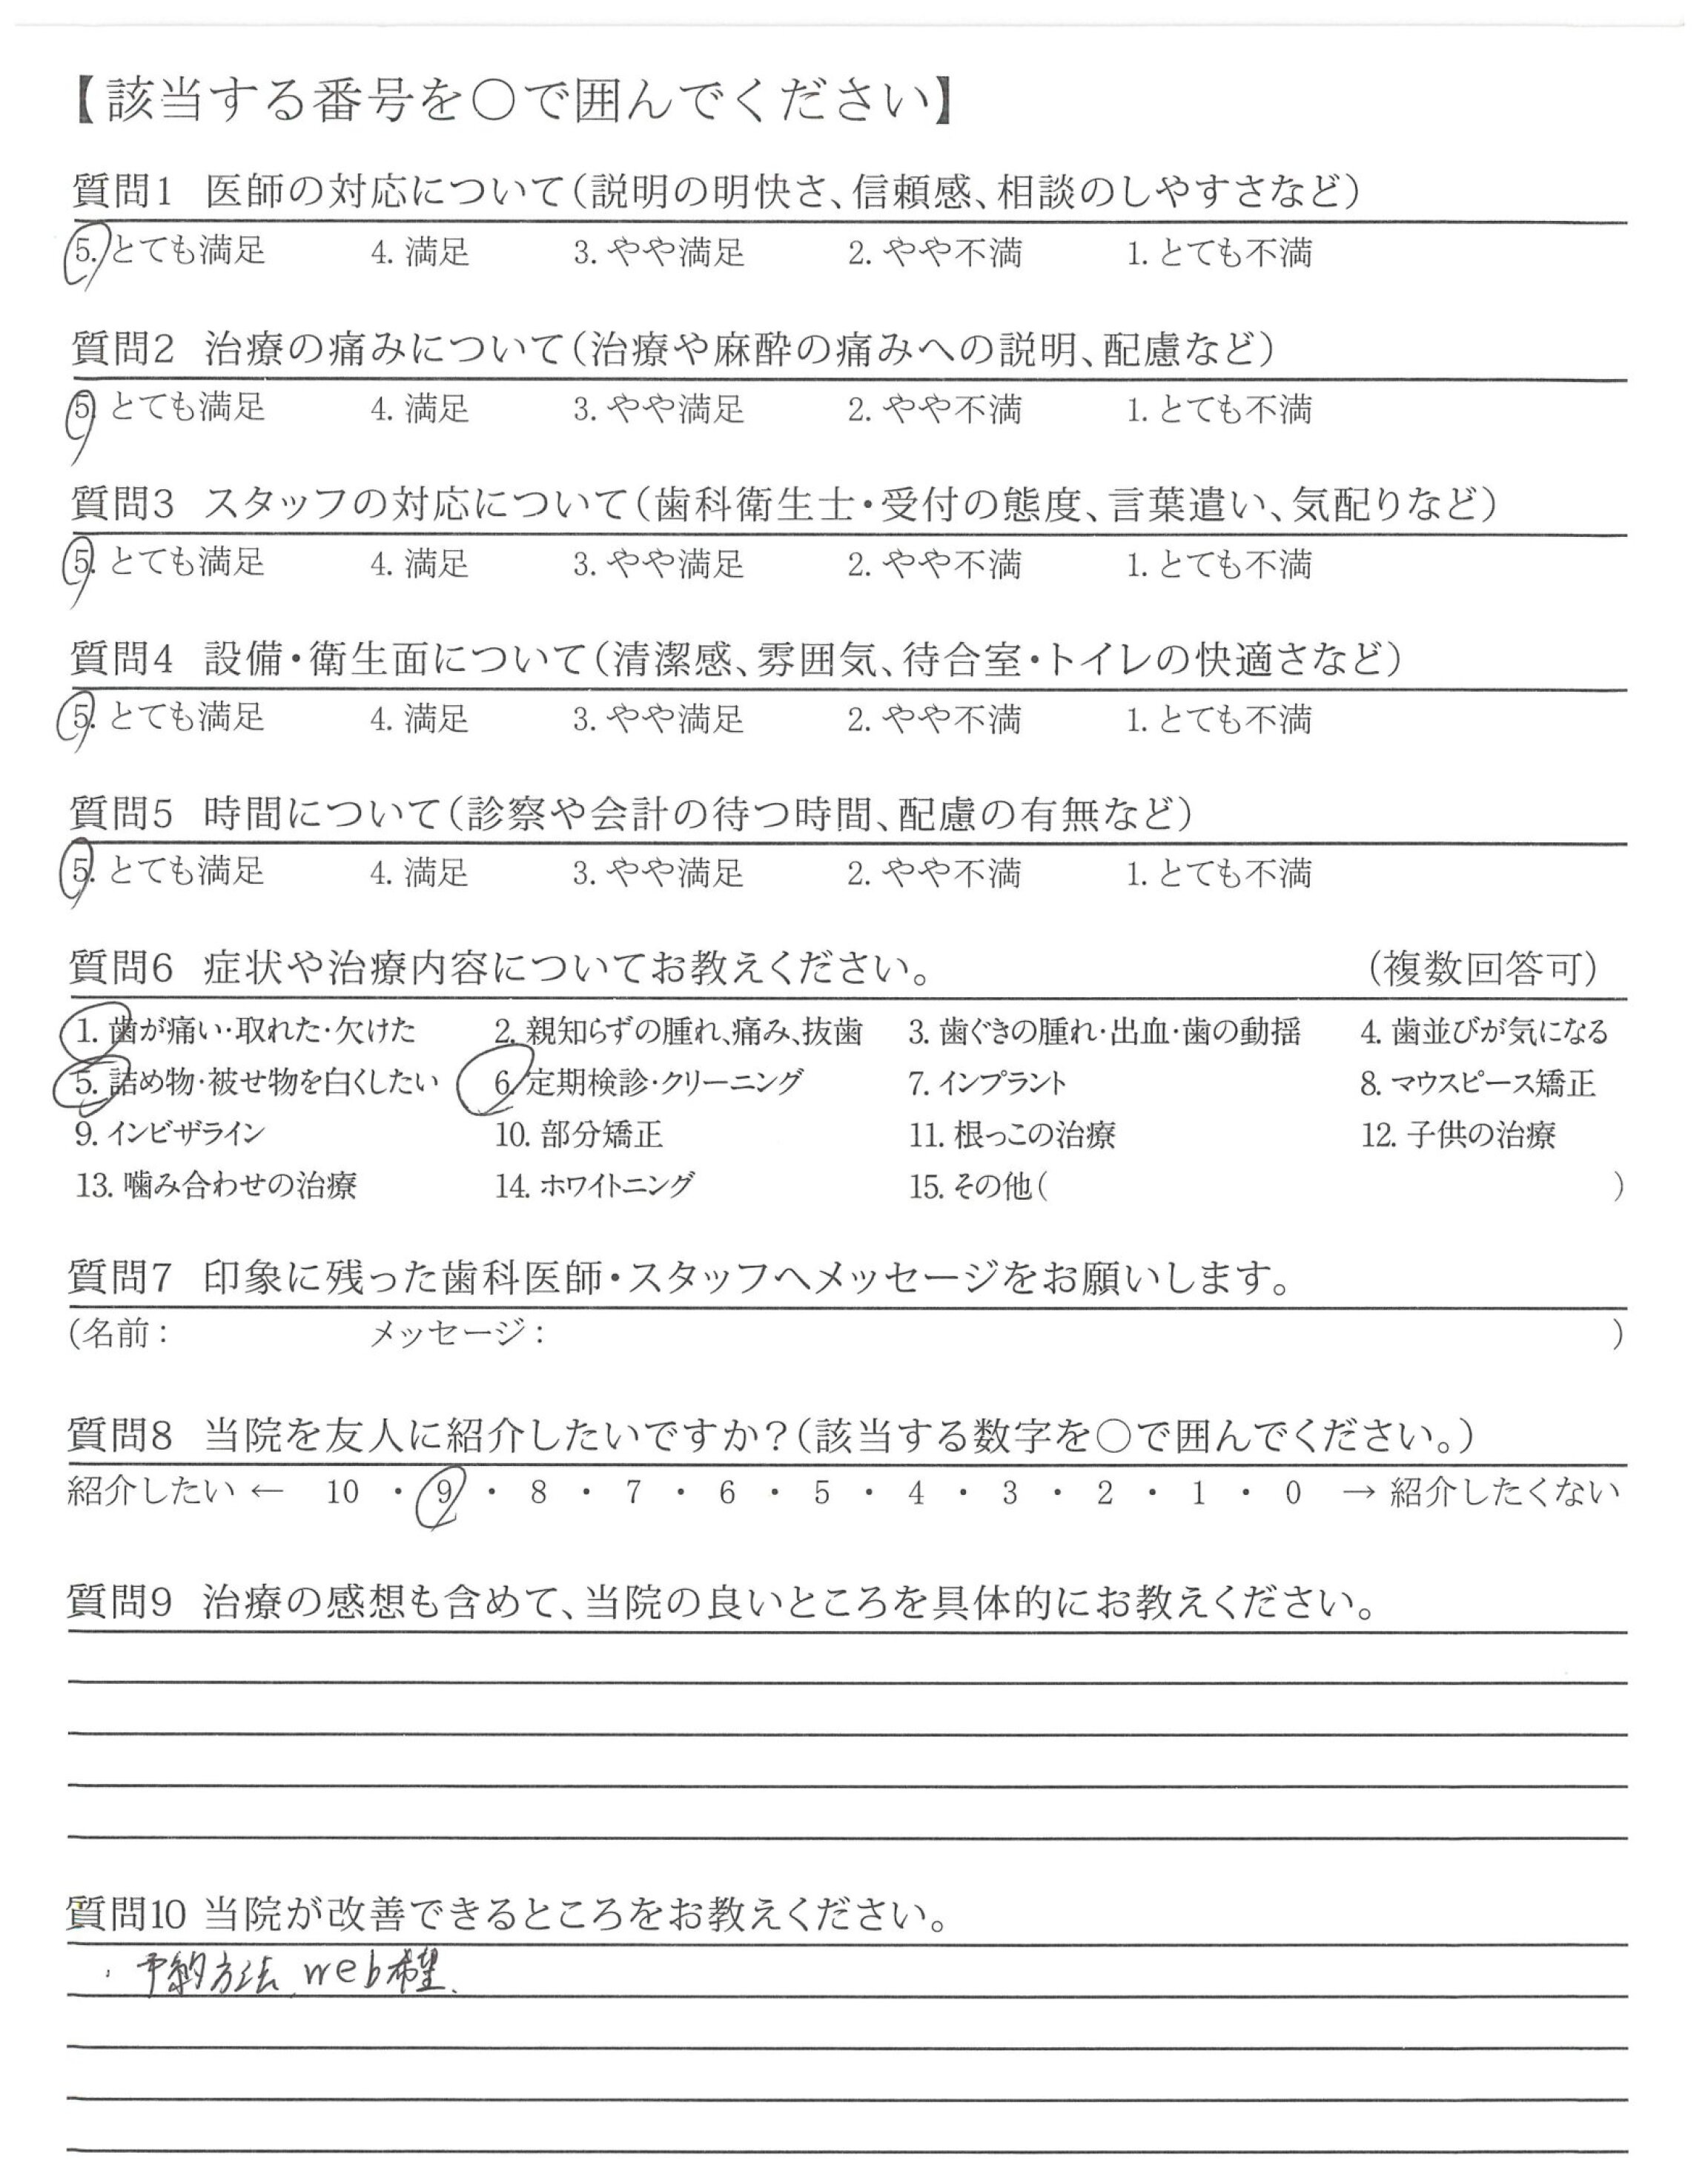 【該当する番号を〇で囲んでください】
質問1 医師の対応について(説明の明快さ、信頼感、相談のしやすさなど)
5. とても満足 4. 満足 3. やや満足 2. やや不満 1. とても不満
質問2 治療の痛みについて(治療や麻酔の痛みへの説明、配慮など)
5. とても満足 4. 満足 3. やや満足 2. やや不満 1. とても不満
質問3 スタッフの対応について(歯科衛生士・受付の態度、言葉遣い、気配りなど)
5. とても満足 4. 満足 3. やや満足 2. やや不満 1. とても不満
質問4 設備・衛生面について(清潔感、雰囲気、待合室・トイレの快適さなど)
5. とても満足 4. 満足 3. やや満足 2. やや不満 1. とても不満
質問5 時間について(診察や会計の待つ時間、配慮の有無など)
5. とても満足 4. 満足 3. やや満足 2. やや不満 1. とても不満
質問6 症状や治療内容についてお教えください。 (複数回答可)
1. 歯が痛い・取れた・欠けた 2. 親知らずの腫れ、痛み、抜歯 3. 歯ぐきの腫れ・出血・歯の動揺 4. 歯並びが気になる
5. 詰め物・被せ物を白くしたい 6. 定期検診・クリーニング 7. インプラント 8. マウスピース矯正
9. インビザライン 10. 部分矯正 11. 根っこの治療 12. 子供の治療
13. 噛み合わせの治療 14. ホワイトニング 15. その他( )
質問7 印象に残った歯科医師・スタッフへメッセージをお願いします。
(名前: メッセージ: )
質問8 当院を友人に紹介したいですか?(該当する数字を〇で囲んでください。)
紹介したい ← 10 ・ 9 ・ 8 ・ 7 ・ 6 ・ 5 ・ 4 ・ 3 ・ 2 ・ 1 ・ 0 → 紹介したくない
質問9 治療の感想も含めて、当院の良いところを具体的にお教えください。
質問10 当院が改善できるところをお教えください。
・予約方法、web希望.